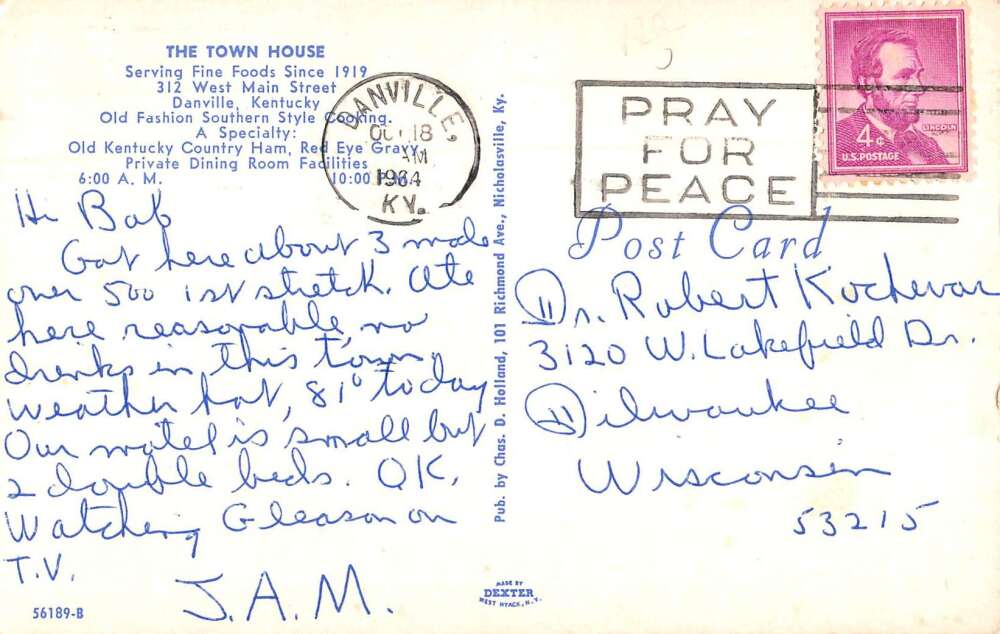 THE TOWN HOUSE
Serving Fine Foods Since 1919
312 West Main Street
Danville, Kentucky
Old Fashion Southern Style Cooking.
A Specialty:
Old Kentucky Country Ham, Red Eye Gravy
Private Dining Room Facilities
6:00 A. M. 10:00 P.M.
DANVILLE,
OCT 18
AM
1964
KY.
PRAY
FOR
PEACE
LINCOLN
4¢
U.S. POSTAGE
Hi Bob
Got here about 3 mode
over 500 1st stretch. Ate
here reasonable, no
drinks in this town,
weather hot, 81° today
Our motel is small but
2 double beds. OK.
Watching Gleason on
T.V.
J.A.M.
56189-B
Pub. by Chas. D. Holland, 101 Richmond Ave., Nicholasville, Ky.
MADE BY
DEXTER
WEST NYACK, N.Y.
Post Card
Dr. Robert Kochevar
3120 W. Lakefield Dr.
Milwaukee
Wisconsin
53215